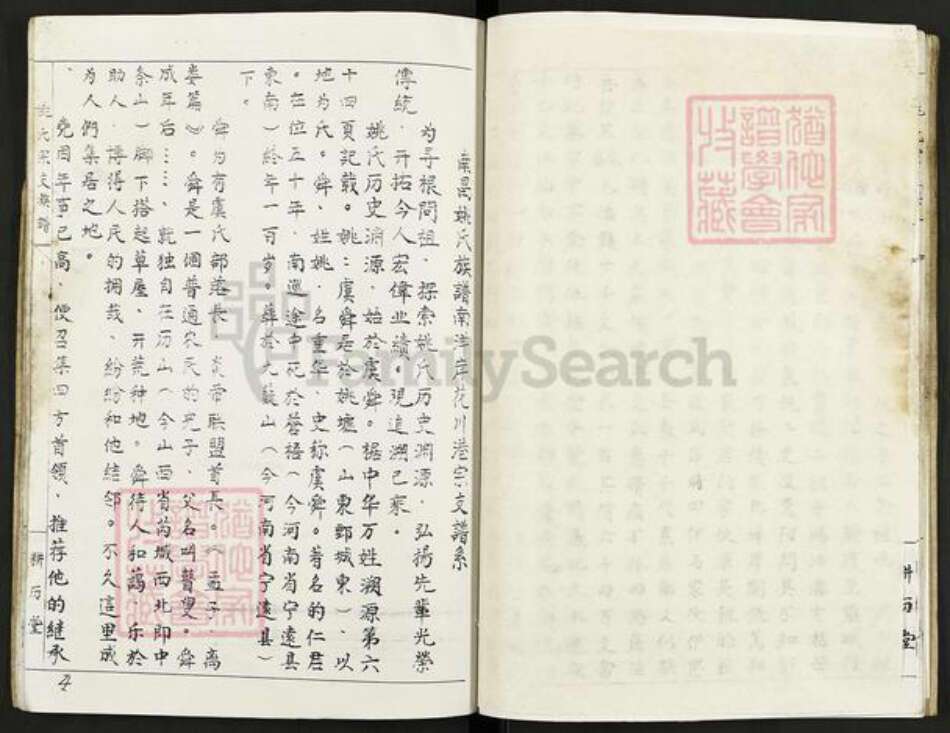 南昌姚氏族譜南洋岸花川港宗支譜系
为寻根問祖．探索姚氏历史淵源．弘揚先輩光榮
傳統．开拓今人宏偉业績．現追溯己来．
姚氏历史淵源．始於虞舜．据中华万姓溯源第六
十四頁記载。姚：虞舜居於姚墟（山東鄄城東）．以
地为氏。舜．姓姚．名重华．史称虞舜。著名的仁君
。在位五十年．南巡途中死於蒼梧（今河南省宁遠县
東南）終年一百岁。葬於九嶷山（今河南省宁遠县）
下。
舜为有虞氏部落長．炎帝联盟首長。《孟子．离
娄篇》。舜是一個普通农民的兒子．父名叫瞽叟。舜
成年后……．就独自在历山（今山西省芮城西北即中
条山）脚下搭起草屋．开荒种地。舜待人和藹．乐於
助人．博得人民的拥戴．紛紛和他結邻。不久這里成
为人們集居之地。
尧因年事已高．便召集四方首領．推荐他的継承
姚氏宗支族譜
耕历堂
4
猶他家
譜學會
收藏
FamilySearch
猶他家
譜學會
收藏
耕历堂